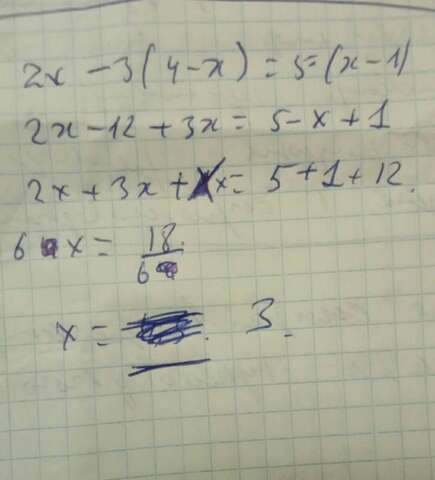 2x - 3(4-x) = 5-(x-1)
2x - 12 + 3x = 5 - x + 1
2x + 3x + x = 5 + 1 + 12.
6 x = 18/6
x = 3.